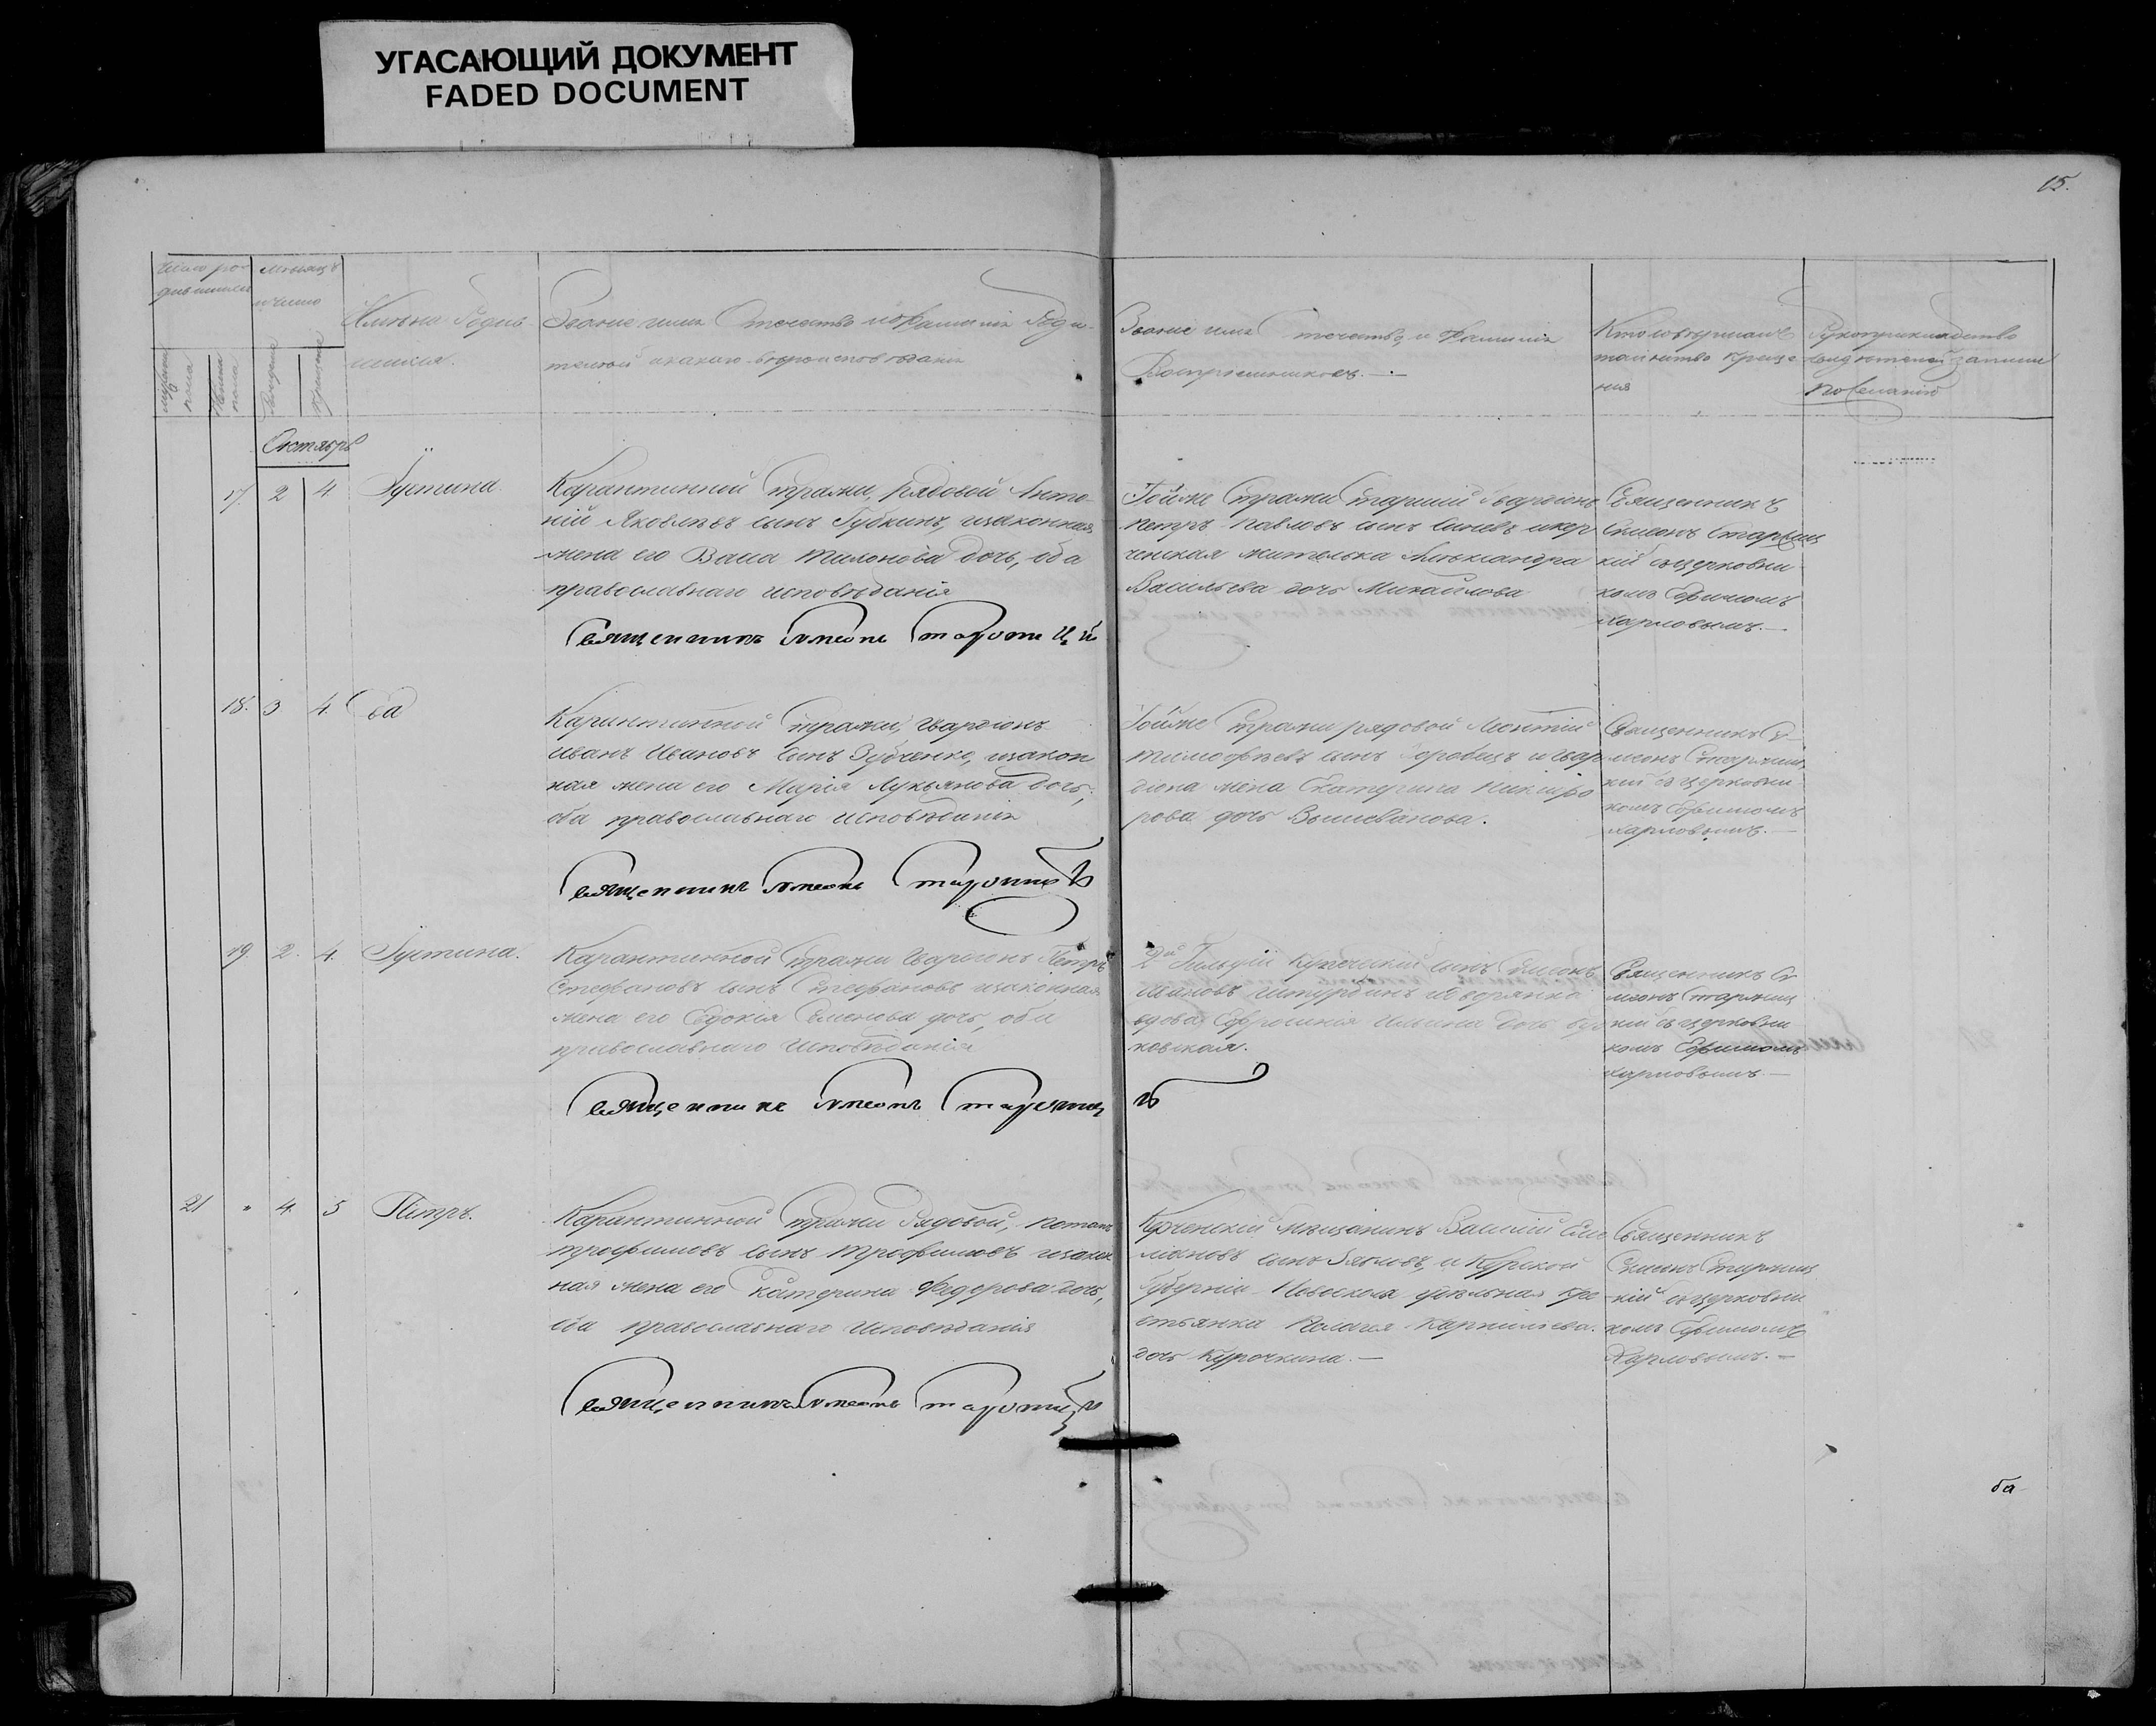 УГАСАЮЩИЙ ДОКУМЕНТ
FADED DOCUMENT
15.
Число ро-
дившихся
мужеска
пола
женска
пола
Месяцъ
и число
Рожденія
Крещенія
Имена Родив
шихся.
Званіе имя Отечество и Фамилія Роди-
телей и какого вероисповеданія
Званіе имя Отечество, и Фамилія
Воспріемниковъ.
Кто совершалъ
таинство Креще
нія
Рукоприкладство
свидетелей записи
по желанію
Октябрь
17. 2 4 Іустина.
Карантинной Стражи, рядовой Анто
ній Яковлевъ сынъ Губкинъ, и законная
жена его Васса Тихонова дочь, оба
православнаго исповѣданія
Священникъ Симеонъ Старжицкій
Тойже Стражи Старшій Гвардіонъ
Петръ Павловъ сынъ и кер
ченская жителька Александра
Васильева дочь Михайлова
Священникъ
Симеонъ Старжиц
кій съ церковни
комъ Ефимомъ
Харловымъ.
18. 3 4. Ева
Карантинной Стражи, Гвардіонъ
Иванъ Ивановъ сынъ Зубченко, и закон
ная жена его Марія Лукьянова дочь,
оба православнаго исповѣданія
Священникъ Симеонъ Старжицкій
Тойже Стражи рядовой Леонтій
Тимофѣевъ сынъ и гвар
діона жена Екатерина Никифо
рова дочь
Священникъ Си
меонъ Старжиц
кій съ церковни
комъ Ефимомъ
Харловымъ.
19. 2. 4. Іустина.
Карантинной Стражи Гвардіонъ Петръ
Стефановъ сынъ Стефановъ и законная
жена его Евдокія Семенова дочь, оба
православнаго Исповѣданія
Священникъ Симеонъ Старжицкій
2й Гильдіи Купеческій сынъ Симеонъ
Ивановъ и дворянка
вдова Ефросинія Ильина дочь
ковская.
Священникъ Си
меонъ Старжиц
кій съ церковни
комъ Ефимомъ
Харловымъ.
21 " 4. 5 Петръ.
Карантинной Стражи Рядовой, Потапъ
Трофимовъ сынъ Трофимовъ и закон
ная жена его Катерина Федорова дочь,
оба православнаго Исповѣданія
Священникъ Симеонъ Старжицкій
Керченскій Мѣщанинъ Василій Еме
ліановъ сынъ и Курской
Губерніи Новоскола удельная кре
стьянка Пелагія Карнильева
дочь Курочкина.
Священникъ
Симеонъ Старжиц
кій съ церковни
комъ Ефимомъ
Харловымъ.
ба